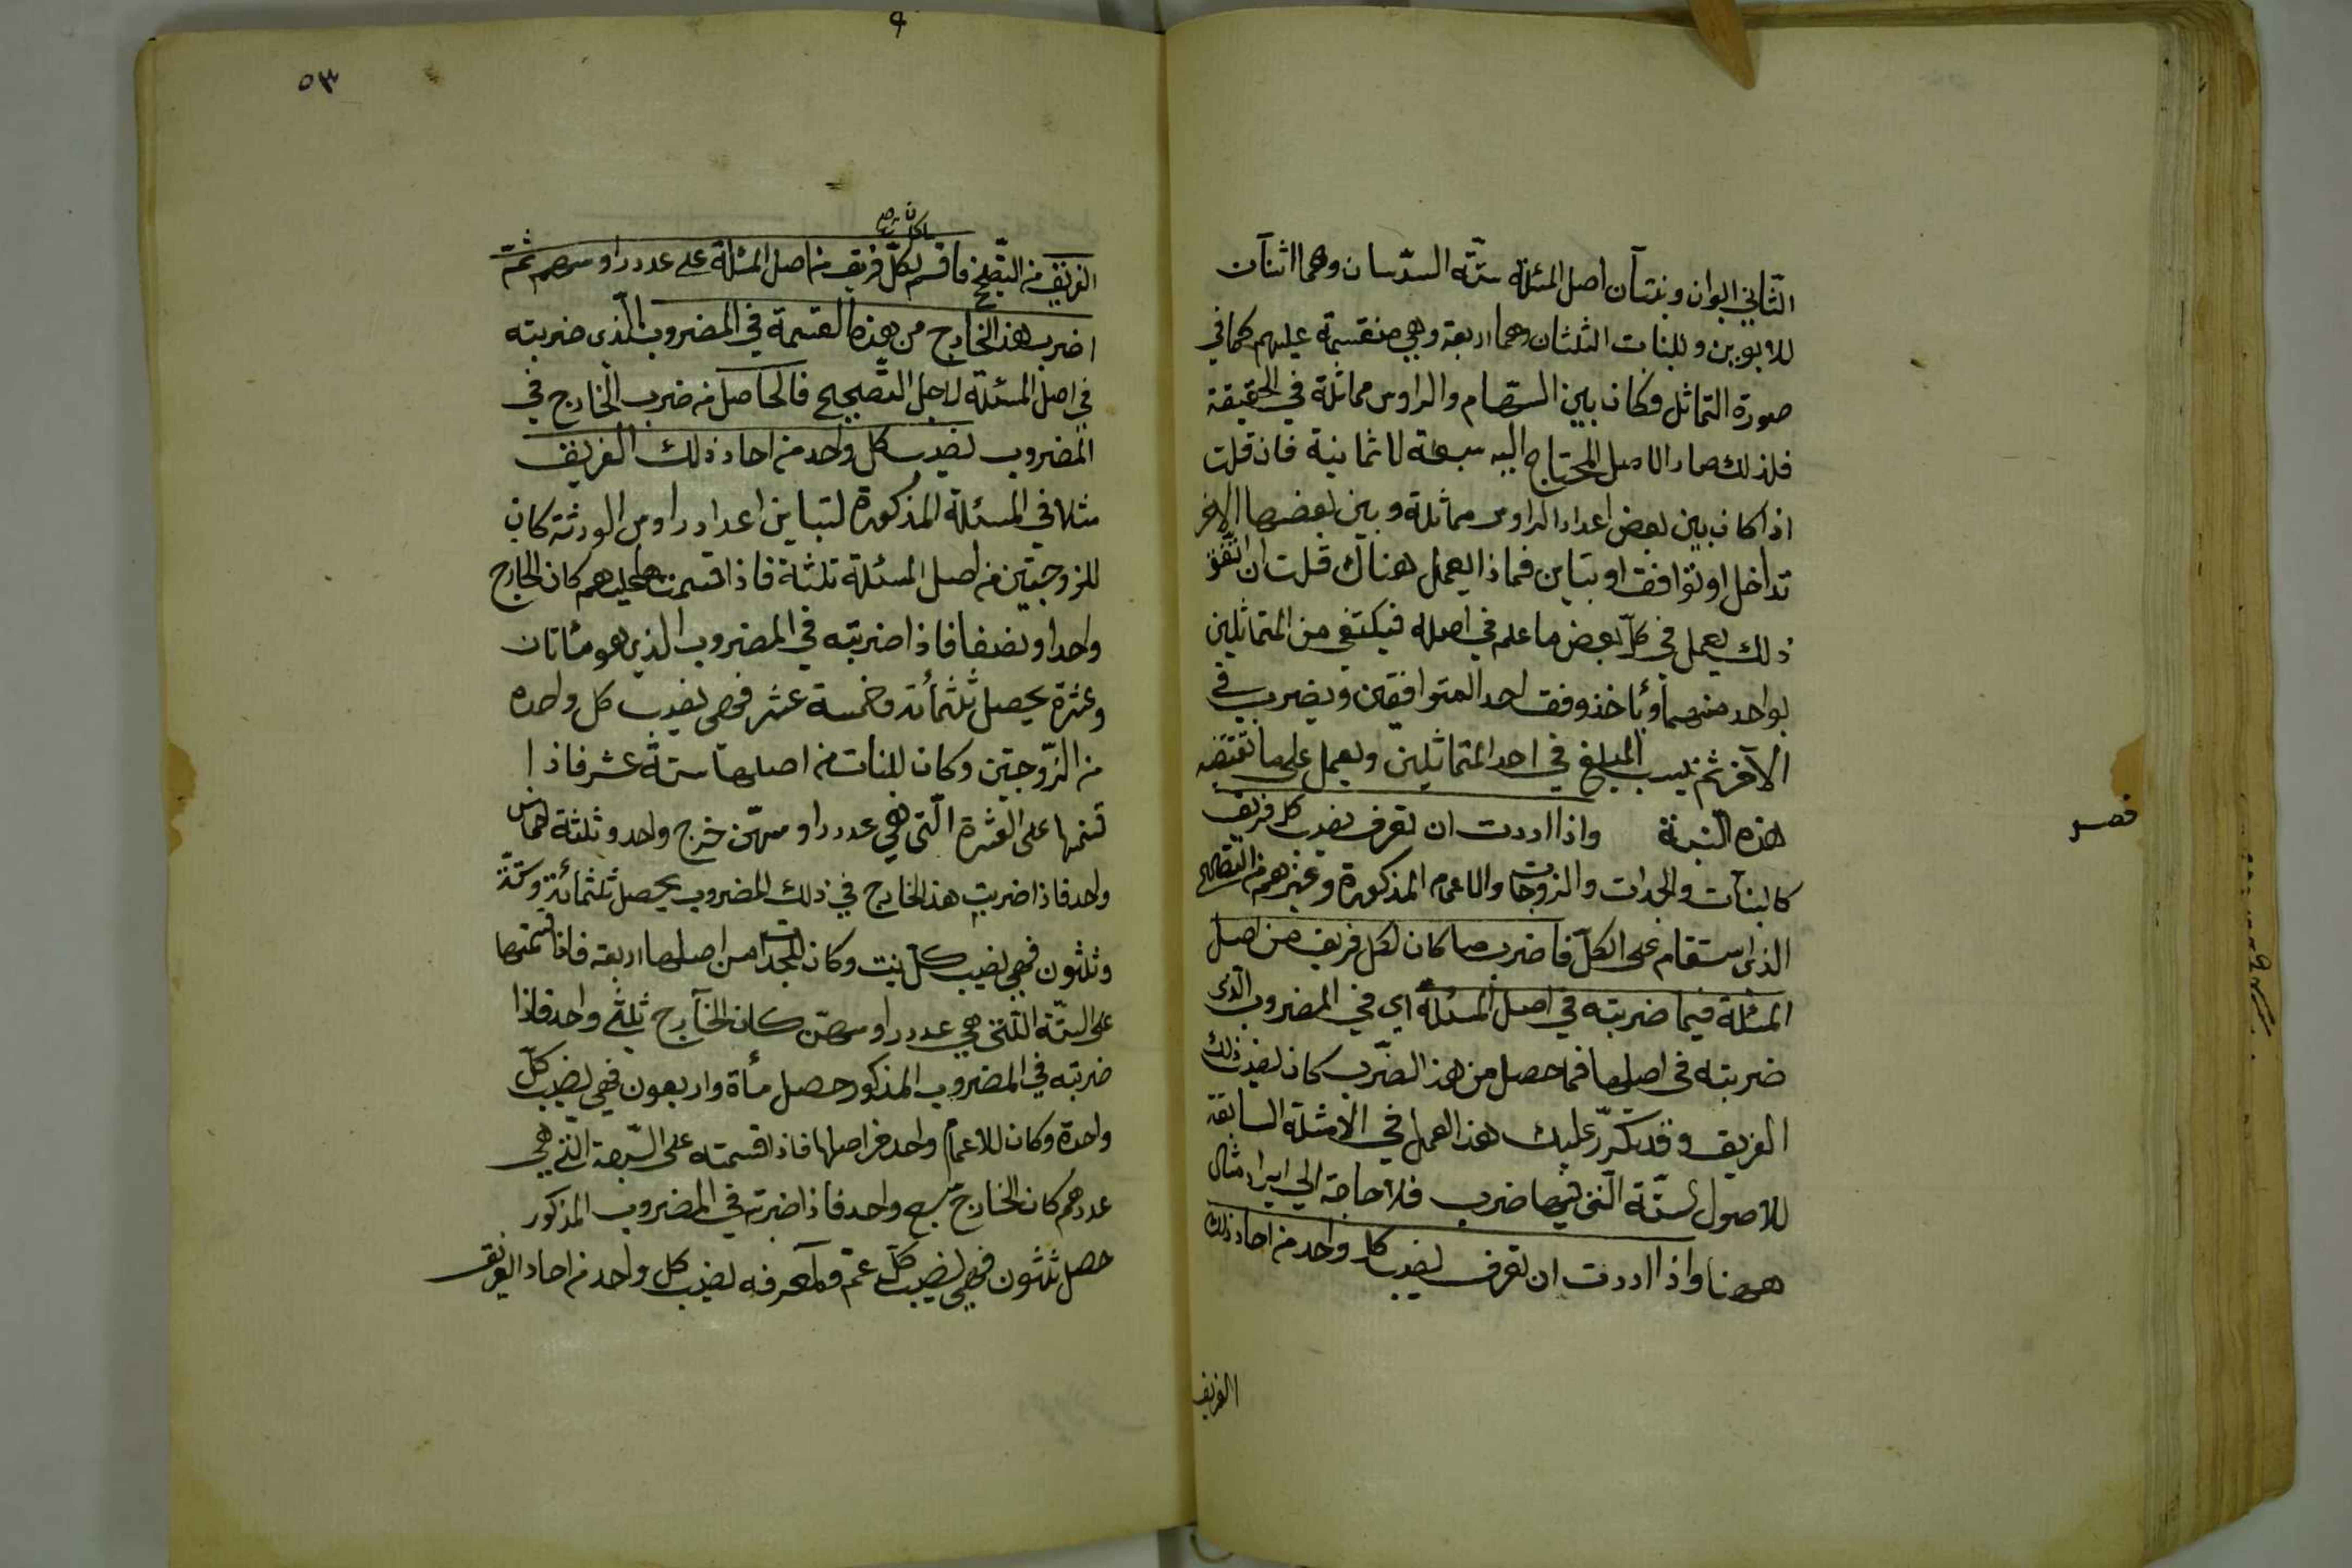 الثاني ابوان وبنتان اصل المسئلة ستّة السدّسان وهما اثنان
للابوين وللبنات الثلثان وهما اربعة وهي منقسمة عليهم كما في
صورة التماثل وكان بين السّهام والراوس مماثلة في الحقيقة
فلذلك صار الاصل المحتاج اليه سبعة لا ثمانية فان قلت
اذا كان بين بعض اعداد الراوس مماثلة وبين بعضها الاخر
تداخل او توافق او تباين فماذا يعمل هناك قلت ان اتّفق
ذلك يعمل في كلّ بعض ما علم في اصله فيكتفي من المتماثلين
بواحد منهما ويأخذ وفق احد المتوافقين ويضرب في
الآخر ثم ينسب المبلغ في احد المتماثلين ويعمل على ما تقتضيه
هذه النسبة واذا اردت ان تعرف نصيب كل فريق
فصل
كالبنات والجدات والزوجات والاعمام المذكورة وغيرهم من التصحيح
الذى استقام على الكلّ فاضرب ما كان لكل فريق من اصل
المسئلة فيما ضربته في اصل المسئلة اي في المضروب الذى
ضربته في اصلها فما حصل من هذا الضّرب كان نصيب ذلك
الفريق وقد تكرّر عليك هذا العمل في الامثلة السابقة
للاصول الستّة التى فيها ضرب فلا حاجة الي ايراد مثال
ههنا واذا اردت ان تعرف نصيب كل واحد من احاد ذلك
الفريق
٥٣
ما كان
الفريق من التصحيح فاقسم لكلّ فريق من اصل المسئلة على عدد راوسهم ثمّ
اضرب هذا الخارج من هذه القسمة في المضروب الّذى ضربته
في اصل المسئلة لاجل التصحيح فالحاصل من ضرب الخارج في
المضروب نصيب كل واحد من احاد ذلك الفريق
مثلا في المسئلة المذكورة لتباين اعداد راوس الورثة كان
للزوجتين من اصل المسئلة ثلثة فاذا قسمتها عليهم كان الخارج
واحدا ونصفا فاذا ضربته في المضروب الذي هو مئاتان
وعشرة يحصل ثلثمأئة وخمسة عشر فهى نصيب كل واحدة
من الزّوجتين وكان للبنات من اصلها ستة عشر فاذا
قسمتها على العشرة الّتى هي عدد راوسهنّ خرج واحد وثلثة اخماس
واحد فاذا ضربت هذا الخارج في ذلك المضروب يحصل ثلثمائة وستّة
وثلثون فهي نصيب كلّ بنت وكان للجدات من اصلها اربعة فاذا قسمتها
على الستّة الّتى هي عدد راوسهن كان الخارج ثلثي واحد فاذا
ضربته في المضروب المذكور حصل مأة واربعون فهي نصيب كلّ
واحدة وكان للاعمام واحد من اصلها فاذا قسمته على السّبعة الّتي هي
عددهم كان الخارج سبع واحد فاذا ضربته في المضروب المذكور
حصل ثلثون فهى نصيب كلّ عمّ ولمعرفه نصيب كل واحد من احاد الفريق